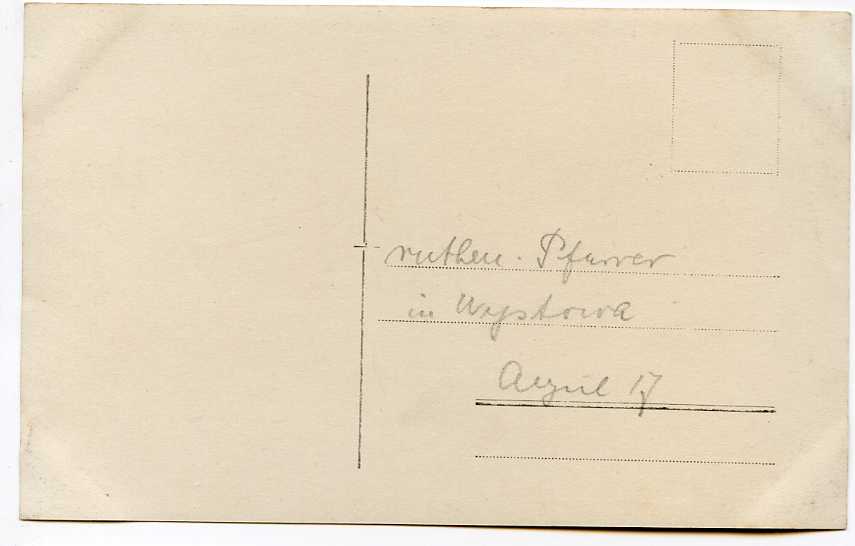 ruthen. Pfarrer
in Wystowa
April 17